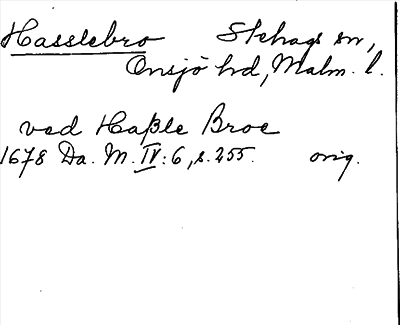 Hasslebro Stehags sn,
Onsjö hd, Malm. l.
ved Haßle Broe
1678 Da. M. IV: 6, s. 255. orig.